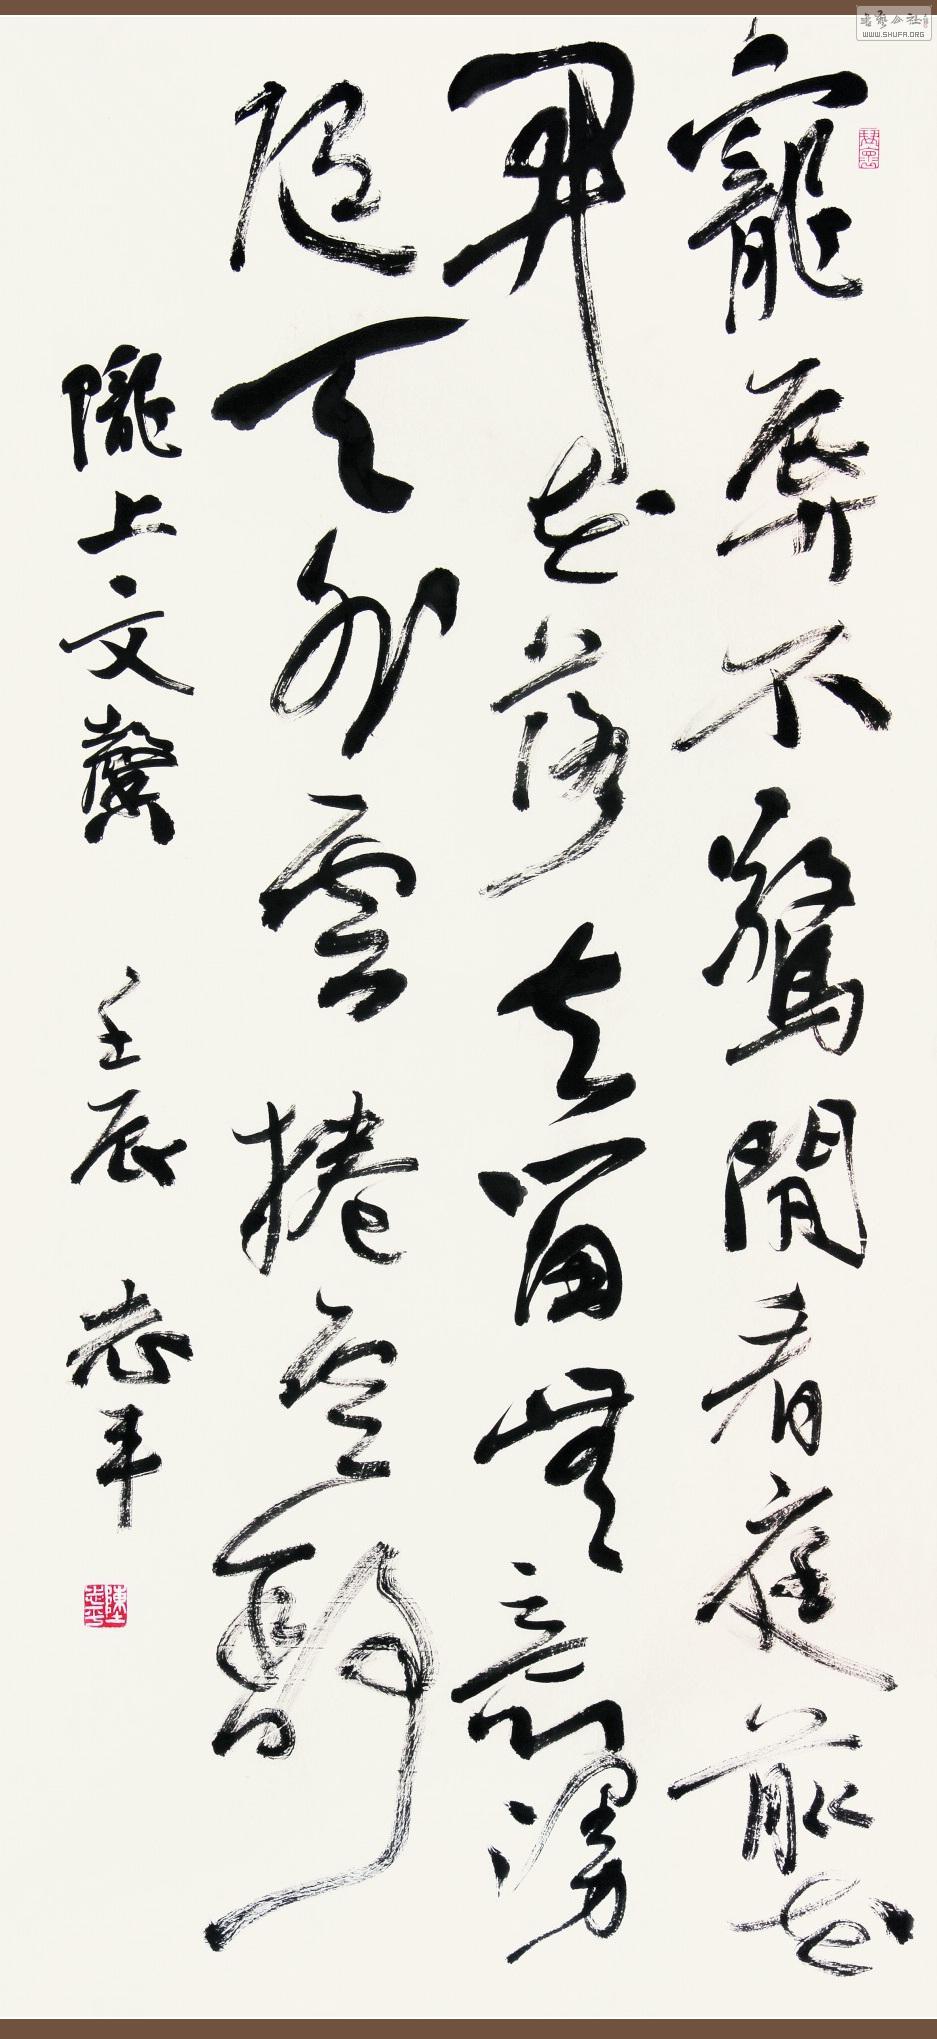 寵辱不驚閒看庭前花
開花落去留無意漫
隨天外雲捲雲舒
隴上文 壬辰 志平
陳志平
書藝公社
WWW.SHUFA.ORG